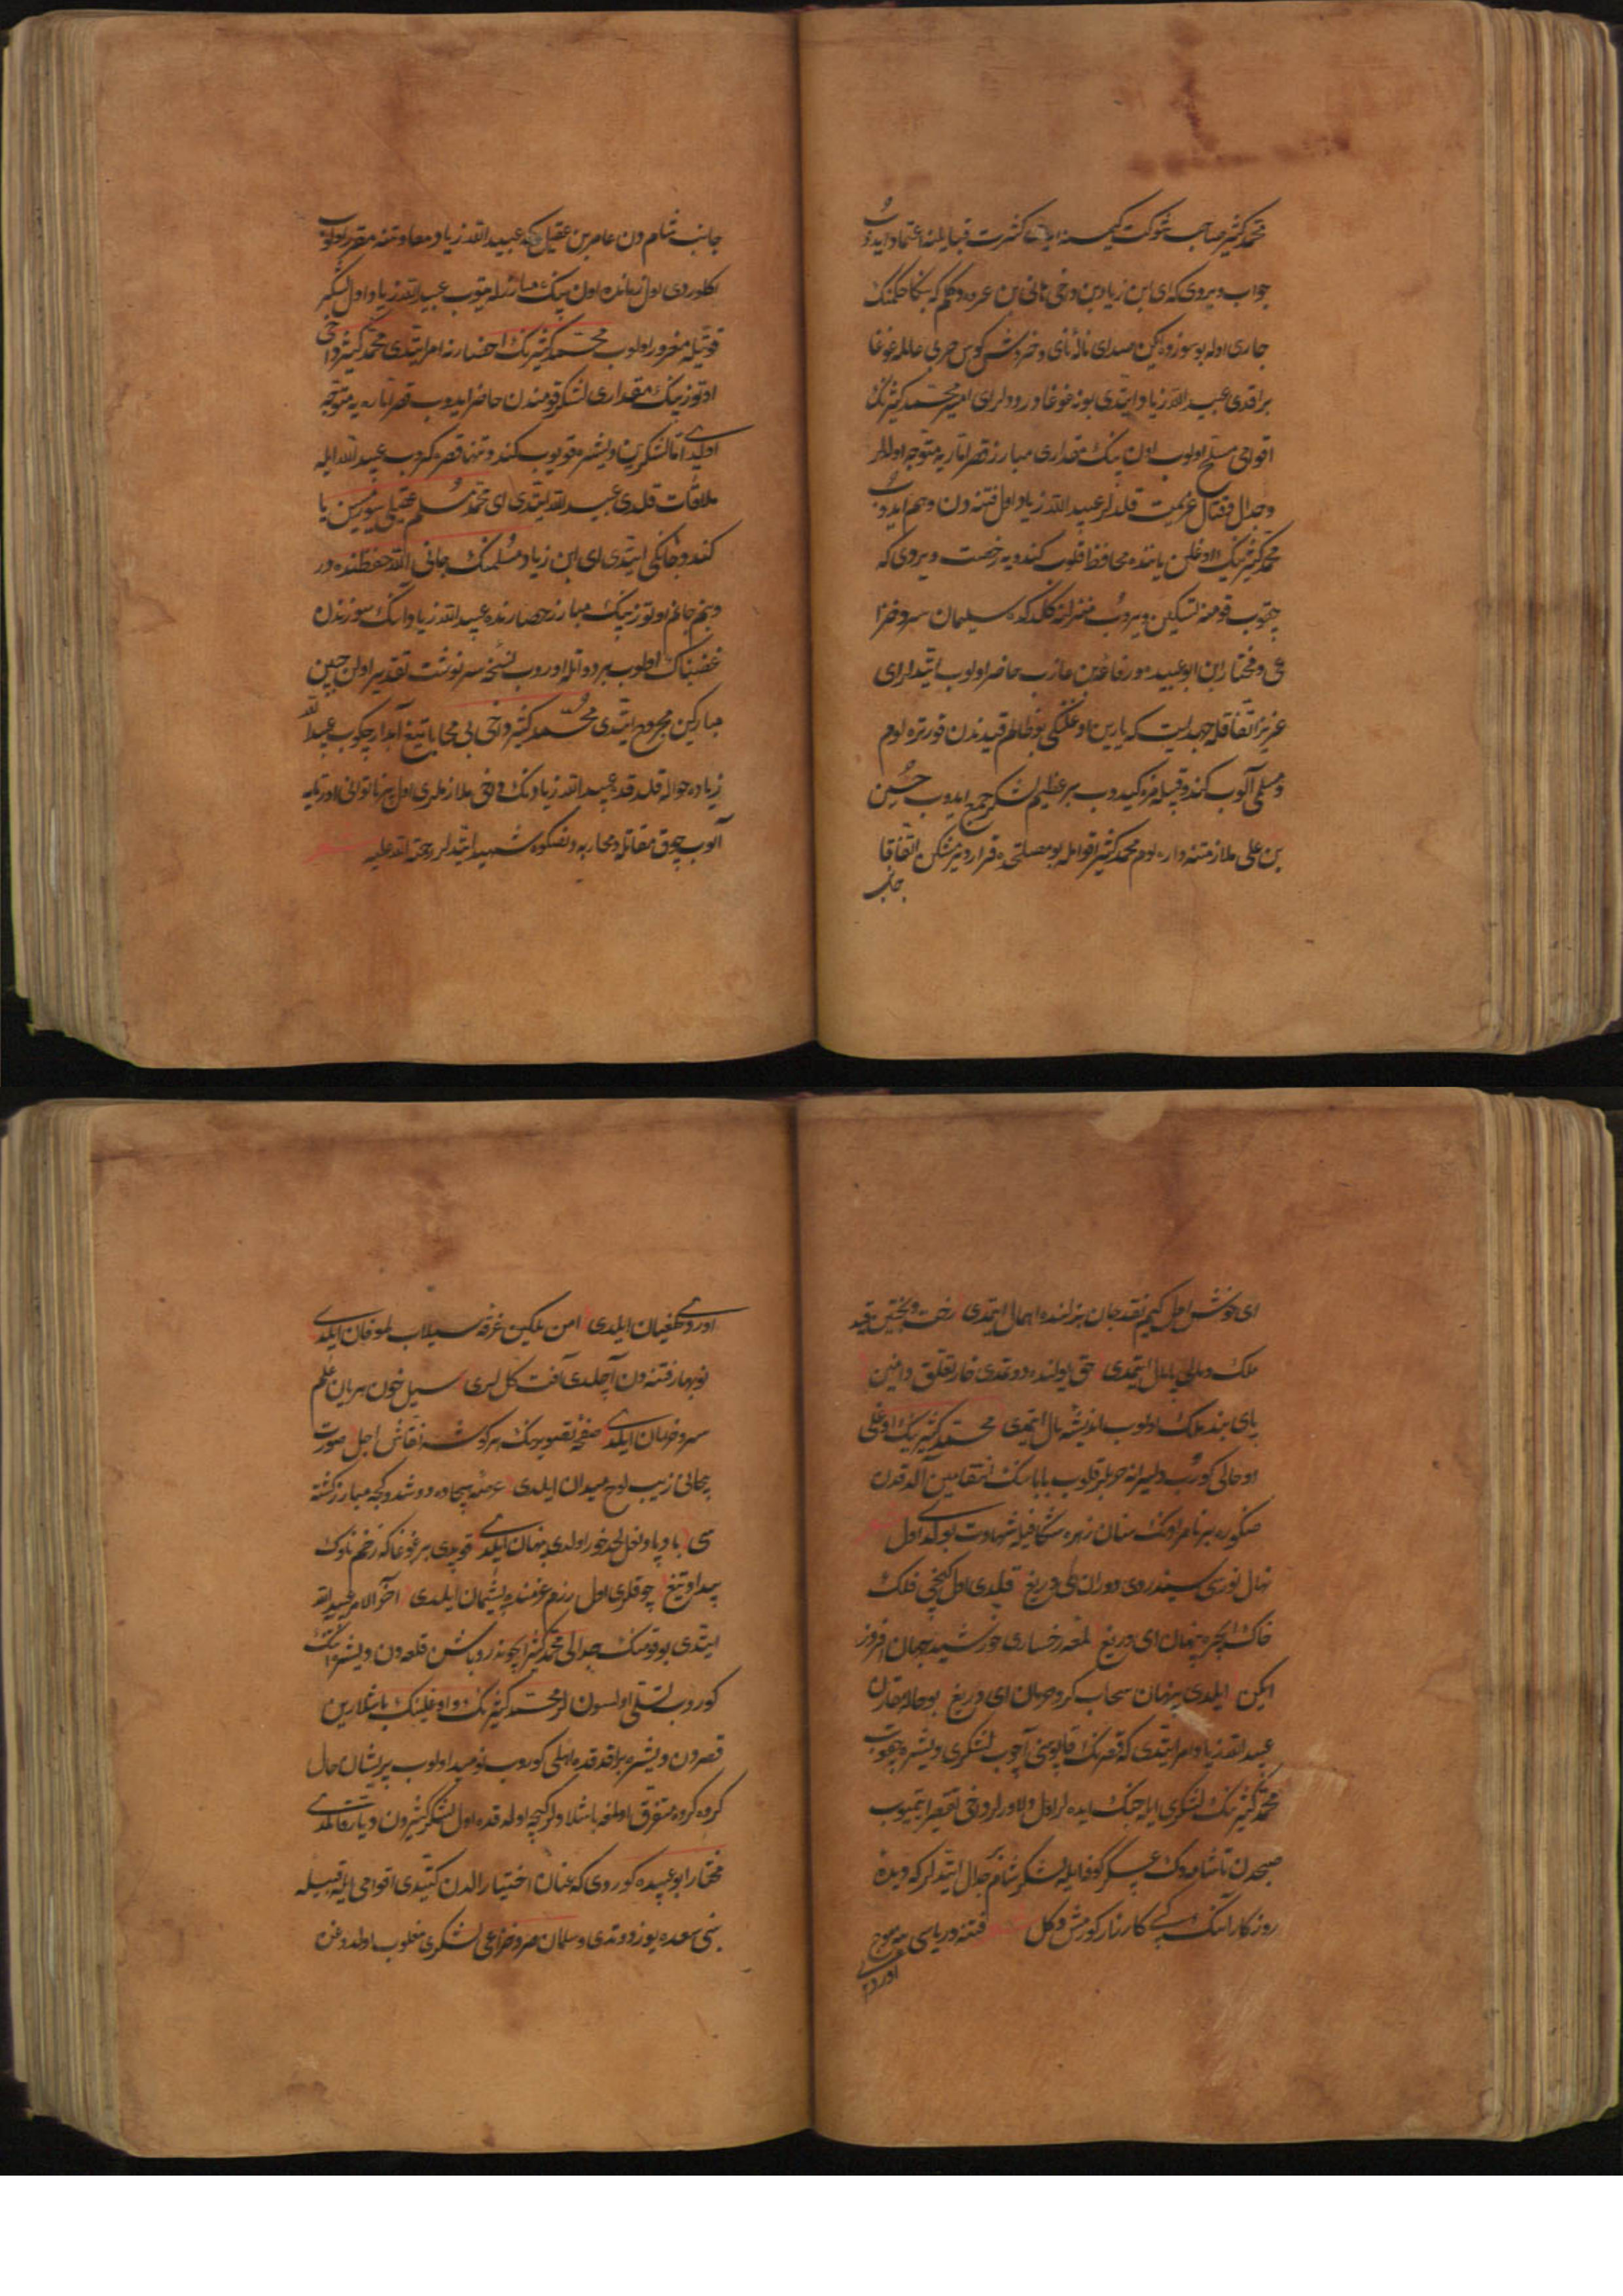 محمد کثیر صاحب شوکت کیمسنه ایدی کثرت قبایلنه اعتماد ایدوب
جواب ویردی که ای ابن زیاد بن دخی هانی بن عروه دکلم که بکا حکمنک
جاری اوله بو سوزده ایکن صدای نائ نای و خروش کوس حربی عالمه غوغا
براقدی عبید الله زیاد ایتدی بو نه غوغادر دولر ای امیر محمد کثیرنک
اقوامی مسلح اولوب اون بیک مقداری مبارز قصر اماریه متوجه اولدلر
و جدال و قتال عزیمت قلدلر عبید الله زیاد اول فتنه دن وهم ایدوب
محمد کثیرنیک اوغلن یاننده محافظ قلوب کندویه رخصت ویردی که
چقوب قومنه تسکین ویروب منزلنه کلدکده سلیمان صرد خزا
عی و مختار ابن ابو عبیده و رفاعه بن عازب حاضر اولوب ایتدیلر ای
عزیز اتفاق قله جهد ایت که یارین اوغلنکی بو ظالم قیدندن قورتره لوم
و مسلمی آلوب کندو قبیله مزه کیدوب بر عظیم لشکر جمع ایدوب حسین
بن علی ملازمتنه واره لوم محمد کثیر اقوامله بو مصلحتده قرار ویرمشکن اتفاقا
جانب
جانب شام دن عامر بن عقیل که عبید الله زیاد معاونتنه مقرر اولوب
کلوردی اول زمانده اون بیک مبارزله یتوب عبید الله زیاد اول لشکر
قوتیله مغرور اولوب محمد کثیرنک احضارنه امر ایتدی محمد کثیر دخی
اوتوز بیک مقداری لشکر قومندن حاضر ایدوب قصر اماره یه متوجه
اولدی اما لشکرین ویشره قویوب کندو تنها قصره کروب عبید الله ایله
ملاقات قلدی عبید الله ایتدی ای محمد مسلم عقیلی سورسن یا
کندو جانکی ایتدی ای ابن زیاد مسلمنک جانی الله حفظنده در
و بنم جانم اوتوز بیک مبارز حصارنده عبید الله زیاد انک سوزندن
غضبناک اولوب بر دواتله اوروب نسخه سرنوشت تقدیر اولن جبین
مبارکین مجروح ایتدی محمد کثیر دخی بی محابا تیغ آبدار چکوب عبید الله
زیاده حواله قلدقده عبید الله زیادنک دخی ملازملری اول پیر ناتوانی اورتایه
آلوب چوق مقاتله و محاربه دنصکره شهید ایتدلر رحمة الله علیه شعر
ای خوش اول کیم نقد جان بذلنده اهمال ایتمدی رخت و بختین قید
ملک و مالی پامال ایتمدی حق یولنده دوتمدی خار تعلق دامنین
پای بند ملک اولوب اندیشه مال ایتمدی محمد کثیرنیک اوغلی
او حالی کوروب دلیرانه حربلر قلوب باباسنک انتقامین آلدقدن
صکره بر نامردنک سنان زهره شکافیله شهادت بولدی شعر اول
نهال نوری سیندردی دوران ای دریغ قیلدی اول کنجی فلک
خاک ایچره پنهان ای دریغ لمعه رخساری خورشید جهان افروز
ایکن ایلدی پنهان سحاب کرد هجران ای دریغ بو حاله مقارن
عبید الله زیاد امر ایتدی که قصرنک قاپوسنی آچوب لشکری ویشره چقوب
محمد کثیرنک لشکری ایله جنک ایده لر اول دلاورلر دخی تقصیر ایتمیوب
صبحدن تا شامه دک عسکر کوفه ایله لشکر شام جدال ایتدلر که دیده
روزکار آنک کبی کارزار کورمش دکل شعر فتنه دریاسی یه موج
اوردی
اوردی طغیان ایلدی امن ملکین غرقه سیلاب طوفان ایلدی
نوبهار فتنه دن آچلدی آفت کل لری سیل خون هر یان علم
سرو خرامان ایلدی صفحه تصویرنک هر کوشه نقاش اجل صورت
بیجانی زیب لوح میدان ایلدی عرصه هیجاده دوشدوکجه مبارز کشته
سی بادپا و نعل لحد خور اولدی پنهان ایلدی قوپدی بر غوغا که زخم ناوک
بیداد تیغ چوقلری اول رزم عزمنده پشیمان ایلدی آخر الامر عبید الله
ایتدی بو قومک جدالی محمد کثیر ایچوندر باشن قلعه دن ویشره
کوروب تسلی اولسونلر محمد کثیرنک و اوغلینک باشلارین
قصردن ویشره براقدقده اهلی کوروب نومید اولوب پریشان حال
کروه کروه متفرق اولمغه باشلادلر کیجه اولدقده اول لشکر کثیردن دیار قالمدی
مختار ابو عبیده کوردی که عنان اختیار الدن کتیدی اقوامی ایله قبیله
بنی سعده یوز دوتدی و سلمان صرد خزاعی لشکری مغلوب اولدوغن